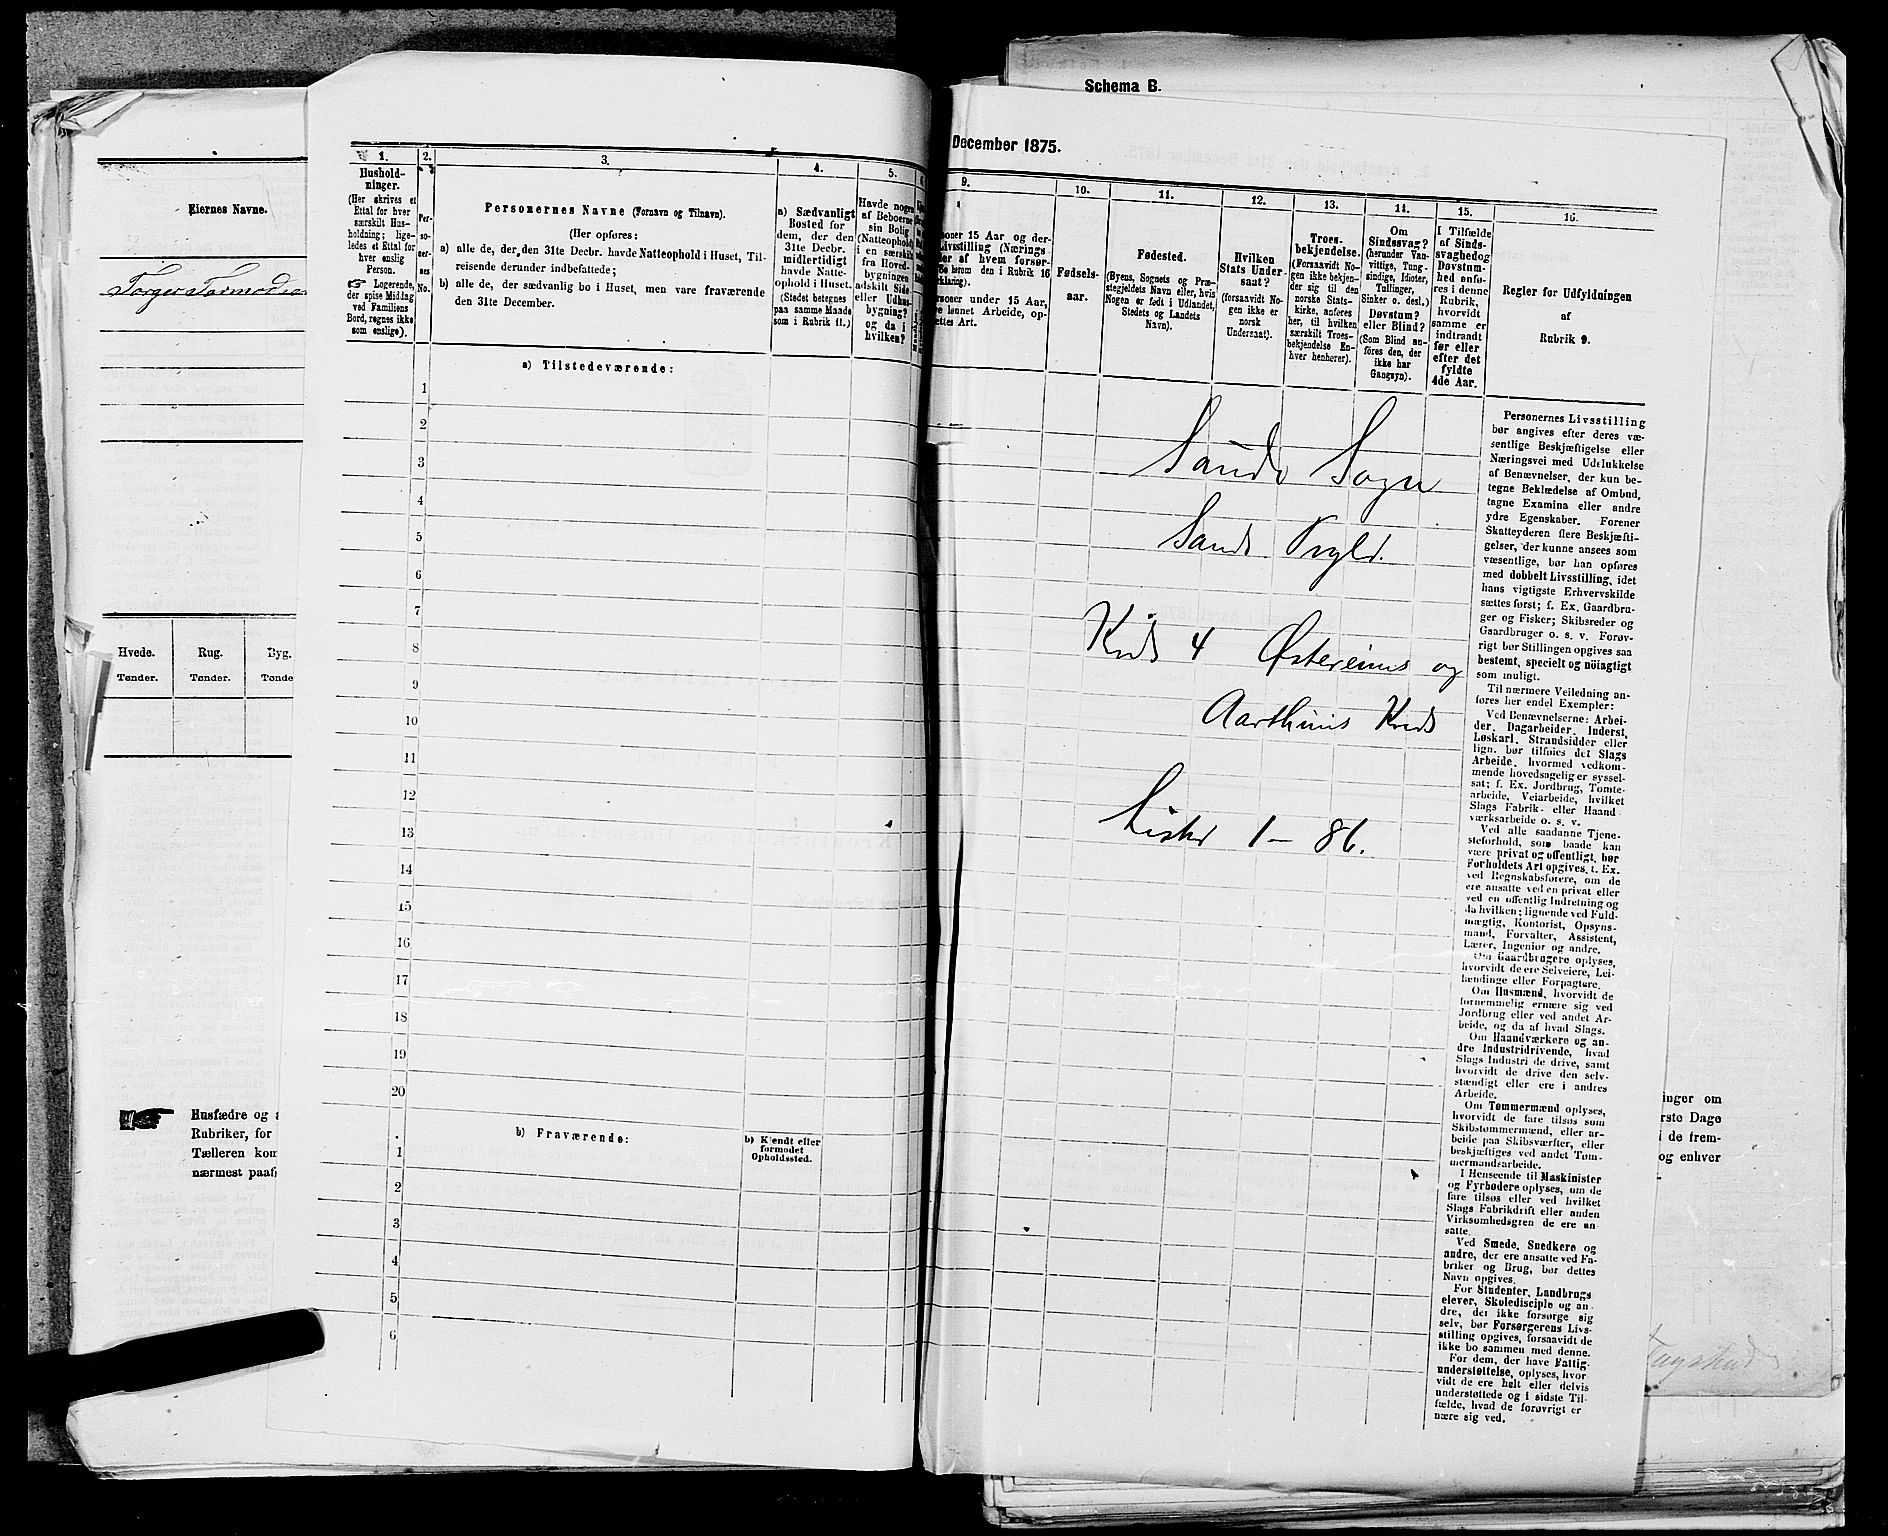 Eiernes Navne.
Torger Tormodsen
Hvede.
Tønder.
Rug.
Tønder.
Byg.
Tønde
Husfædre og
Rubriker, for
Tælleren kom
nærmest paaf
1.
Hushold-
ninger.
(Her skrives et
Ettal for hver
særskilt Hus-
holdning; lige-
ledes et Ettal for
hver enslig
Person.
Logerende,
der spise Middag
ved Familiens
Bord, regnes ikke
som enslige).
2.
Per-
so-
ner-
nes
No.
3.
Personernes Navne (Fornavn og Tilnavn).
(Her opføres:
a) alle de, der den 31te Decbr. havde Natteophold i Huset, Til-
reisende derunder indbefattede;
b) alle de, der sædvanlig bo i Huset, men vare fraværende
den 31te December.
4.
a) Sædvanligt
Bosted for
dem, der den
31te Decbr.
midlertidigt
havde Natte-
ophold i Huset.
(Stedet betegnes
paa samme Maade
som i Rubrik 11.)
5.
Havde nogen
af Beboerne
sin Bolig
(Natteophold)
i en særskilt
fra Hoved-
bygningen
adskilt Side-
eller Udhus-
bygning?
og da i
hvilken?
a) Tilstedeværende:
1
2
3
4
5
6
7
8
9
10
11
12
13
14
15
16
17
18
19
20
b) Fraværende:
b) Kjendt eller
formodet
Opholdssted.
1
2
3
4
5
6
Schema B.
December 1875.
9.
oner 15 Aar og der-
Livsstilling (Nærings
ler af hvem forsør-
Se herom den i Rubrik 16
klaring).
ersoner under 15 Aar,
re lønnet Arbeide, op-
ettes Art.
10.
Fødsels-
aar.
11.
Fødested.
(Byens, Sognets og Præ-
stegjeldets Navn eller, hvis
Nogen er født i Udlandet,
Stedets og Landets
Navn).
12.
Hvilken
Stats Under-
saat?
(forsaavidt No-
gen ikke er
norsk
Undersaat).
13.
Troes-
bekjendelse.
(Forsaavidt No-
gen ikke bekjen-
der sig til den
norske Stats-
kirke, anføres
her, til hvilken
særskilt Troes-
bekjendelse En-
hver henhører).
14.
Om
Sindssvag?
(herunder Van-
vittige, Tung-
sindige, Idioter,
Tullinger,
Sinker o. desl.)
Døvstum?
eller Blind?
(Som Blind an-
føres den, der
ikke har
Gangsyn).
15.
I Tilfælde
af Sinds-
svaghed og
Døvstum-
hed anfø-
res i denne
Rubrik,
hvorvidt
samme er
indtraadt
før eller
efter det
fyldte
4de Aar.
16.
Regler for Udfyldningen
af
Rubrik 9.
Sands Sogn
Sands Prgld.
Krds 4 Østereims og
Aarthuns Krds
Lister 1 - 86.
Personernes Livsstilling
bør angives efter deres væ-
sentlige Beskjæftigelse eller
Næringsvei med Udelukkelse
af Benævnelser, der kun be-
tegne Beklædelse af Ombud,
tagne Examina eller andre
ydre Egenskaber. Forener
Skatteyderen flere Beskjæfti-
gelser, der kunne ansees som
væsentlige, bør han opføres
med dobbelt Livsstilling, idet
hans vigtigste Erhvervskilde
sættes først; f. Ex. Gaardbru-
ger og Fisker; Skibsreder og
Gaardbruger o. s. v. Forøv-
rigt bør Stillingen opgives saa
bestemt, specielt og nöiagtigt
som muligt.
Til nærmere Veiledning an-
føres her endel Exempler:
Ved Benævnelserne: Arbei-
der, Dagarbeider, Inderst,
Løskarl, Strandsidder eller
lign. bør tilføies det Slags
Arbeide, hvormed vedkom-
mende hovedsagelig er syssel-
sat; f. Ex. Jordbrug, Tomte-
arbeide, Veiarbeide, hvilket
Slags Fabrik- eller Haand
værksarbeide o. s. v.
Ved alle saadanne Tjene-
steforhold, som baade kan
være privat og offentligt, bør
Forholdets Art opgives, t. Ex.
ved Regnskabsførere, om de
ere ansatte ved en privat eller
ved en offentlig Indretning og
da hvilken; lignende ved Fuld-
mægtig, Kontorist, Opsyns-
mand, Forvalter, Assistent,
Lærer, Ingeniør og andre.
Om Gaardbrugere oplyses,
hvorvidt de ere Selveiere, Lei-
lændinge eller Forpagtere.
Om Husmænd, hvorvidt de
fornemmelig ernære sig ved
Jordbrug eller ved andet Ar-
beide, og da af hvad Slags.
Om Haandværkere og an-
dre Industridrivende, hvad
Slags Industri de drive, samt
hvorvidt de drive den selv-
stændigt eller ere i andres
Arbeide.
Om Tømmermænd oplyses,
hvorvidt de fare tilsøs som
Skibstømmermænd, eller ar-
beide paa Skibsværfter, eller
beskjæftiges ved andet Tøm-
mermandsarbeide.
I Henseende til Maskinister
og Fyrbødere oplyses, om de
fare tilsøs eller ved hvilket
Slags Fabrikdrift eller anden
Virksomhedsgren de ere an-
satte.
Ved Smede, Snedkere og
andre, der ere ansatte ved Fa-
briker og Brug, bør dettes
Navn opgives.
For Studenter, Landbrugs
elever, Skoledisciple og an-
dre, der ikke forsørge sig
selv, bør Forsørgerens Livs-
stilling opgives, forsaavidt de
ikke bo sammen med denne.
For dem, der have Fattig-
understøttelse, oplyses, hvor
vidt de ere helt eller delvis
understøttede og i sidste Til-
fælde, hvad de forøvrigt er
nære sig ved.
inger om
erste Dage
i de frem-
og enhver